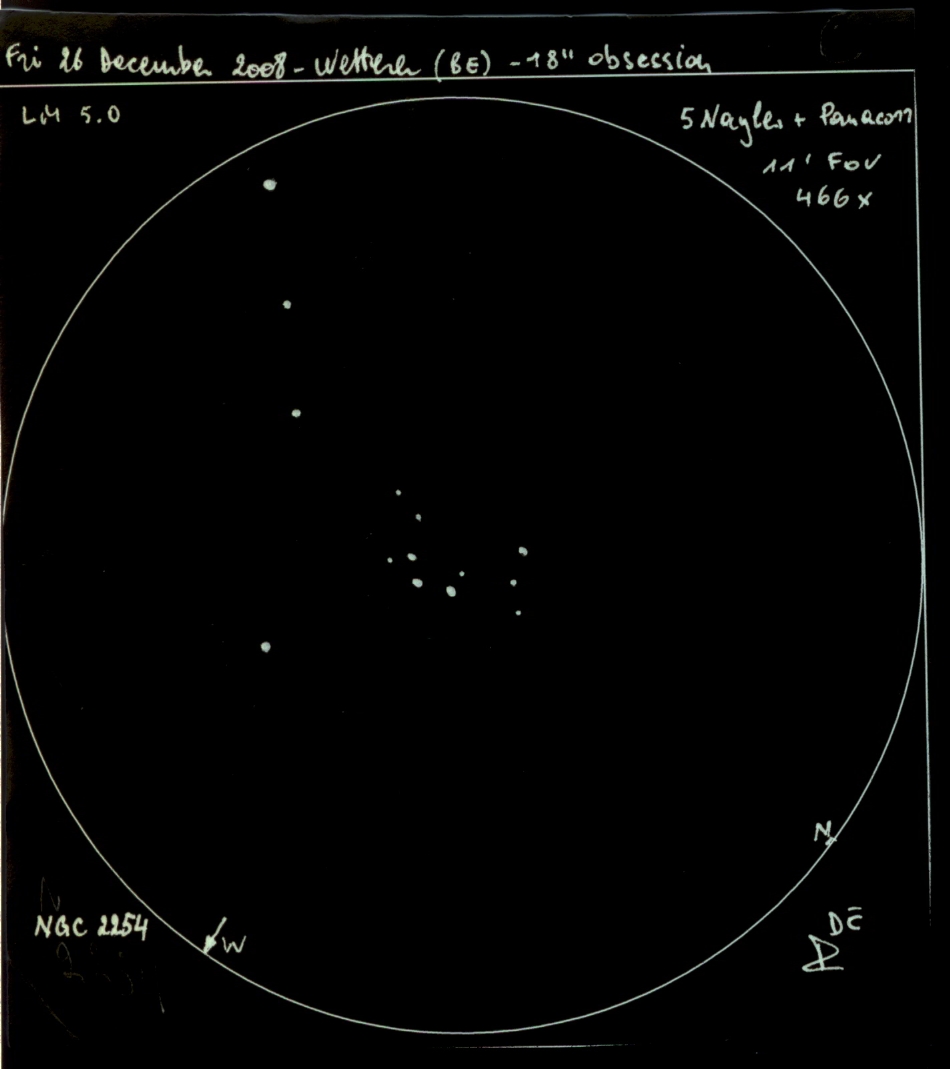 Fri 26 December 2008 - Wetteren (BE) - 18" obsession
LM 5.0
5 Nagler + Paracorr
11' FOV
466x
N
NGC 2254
W